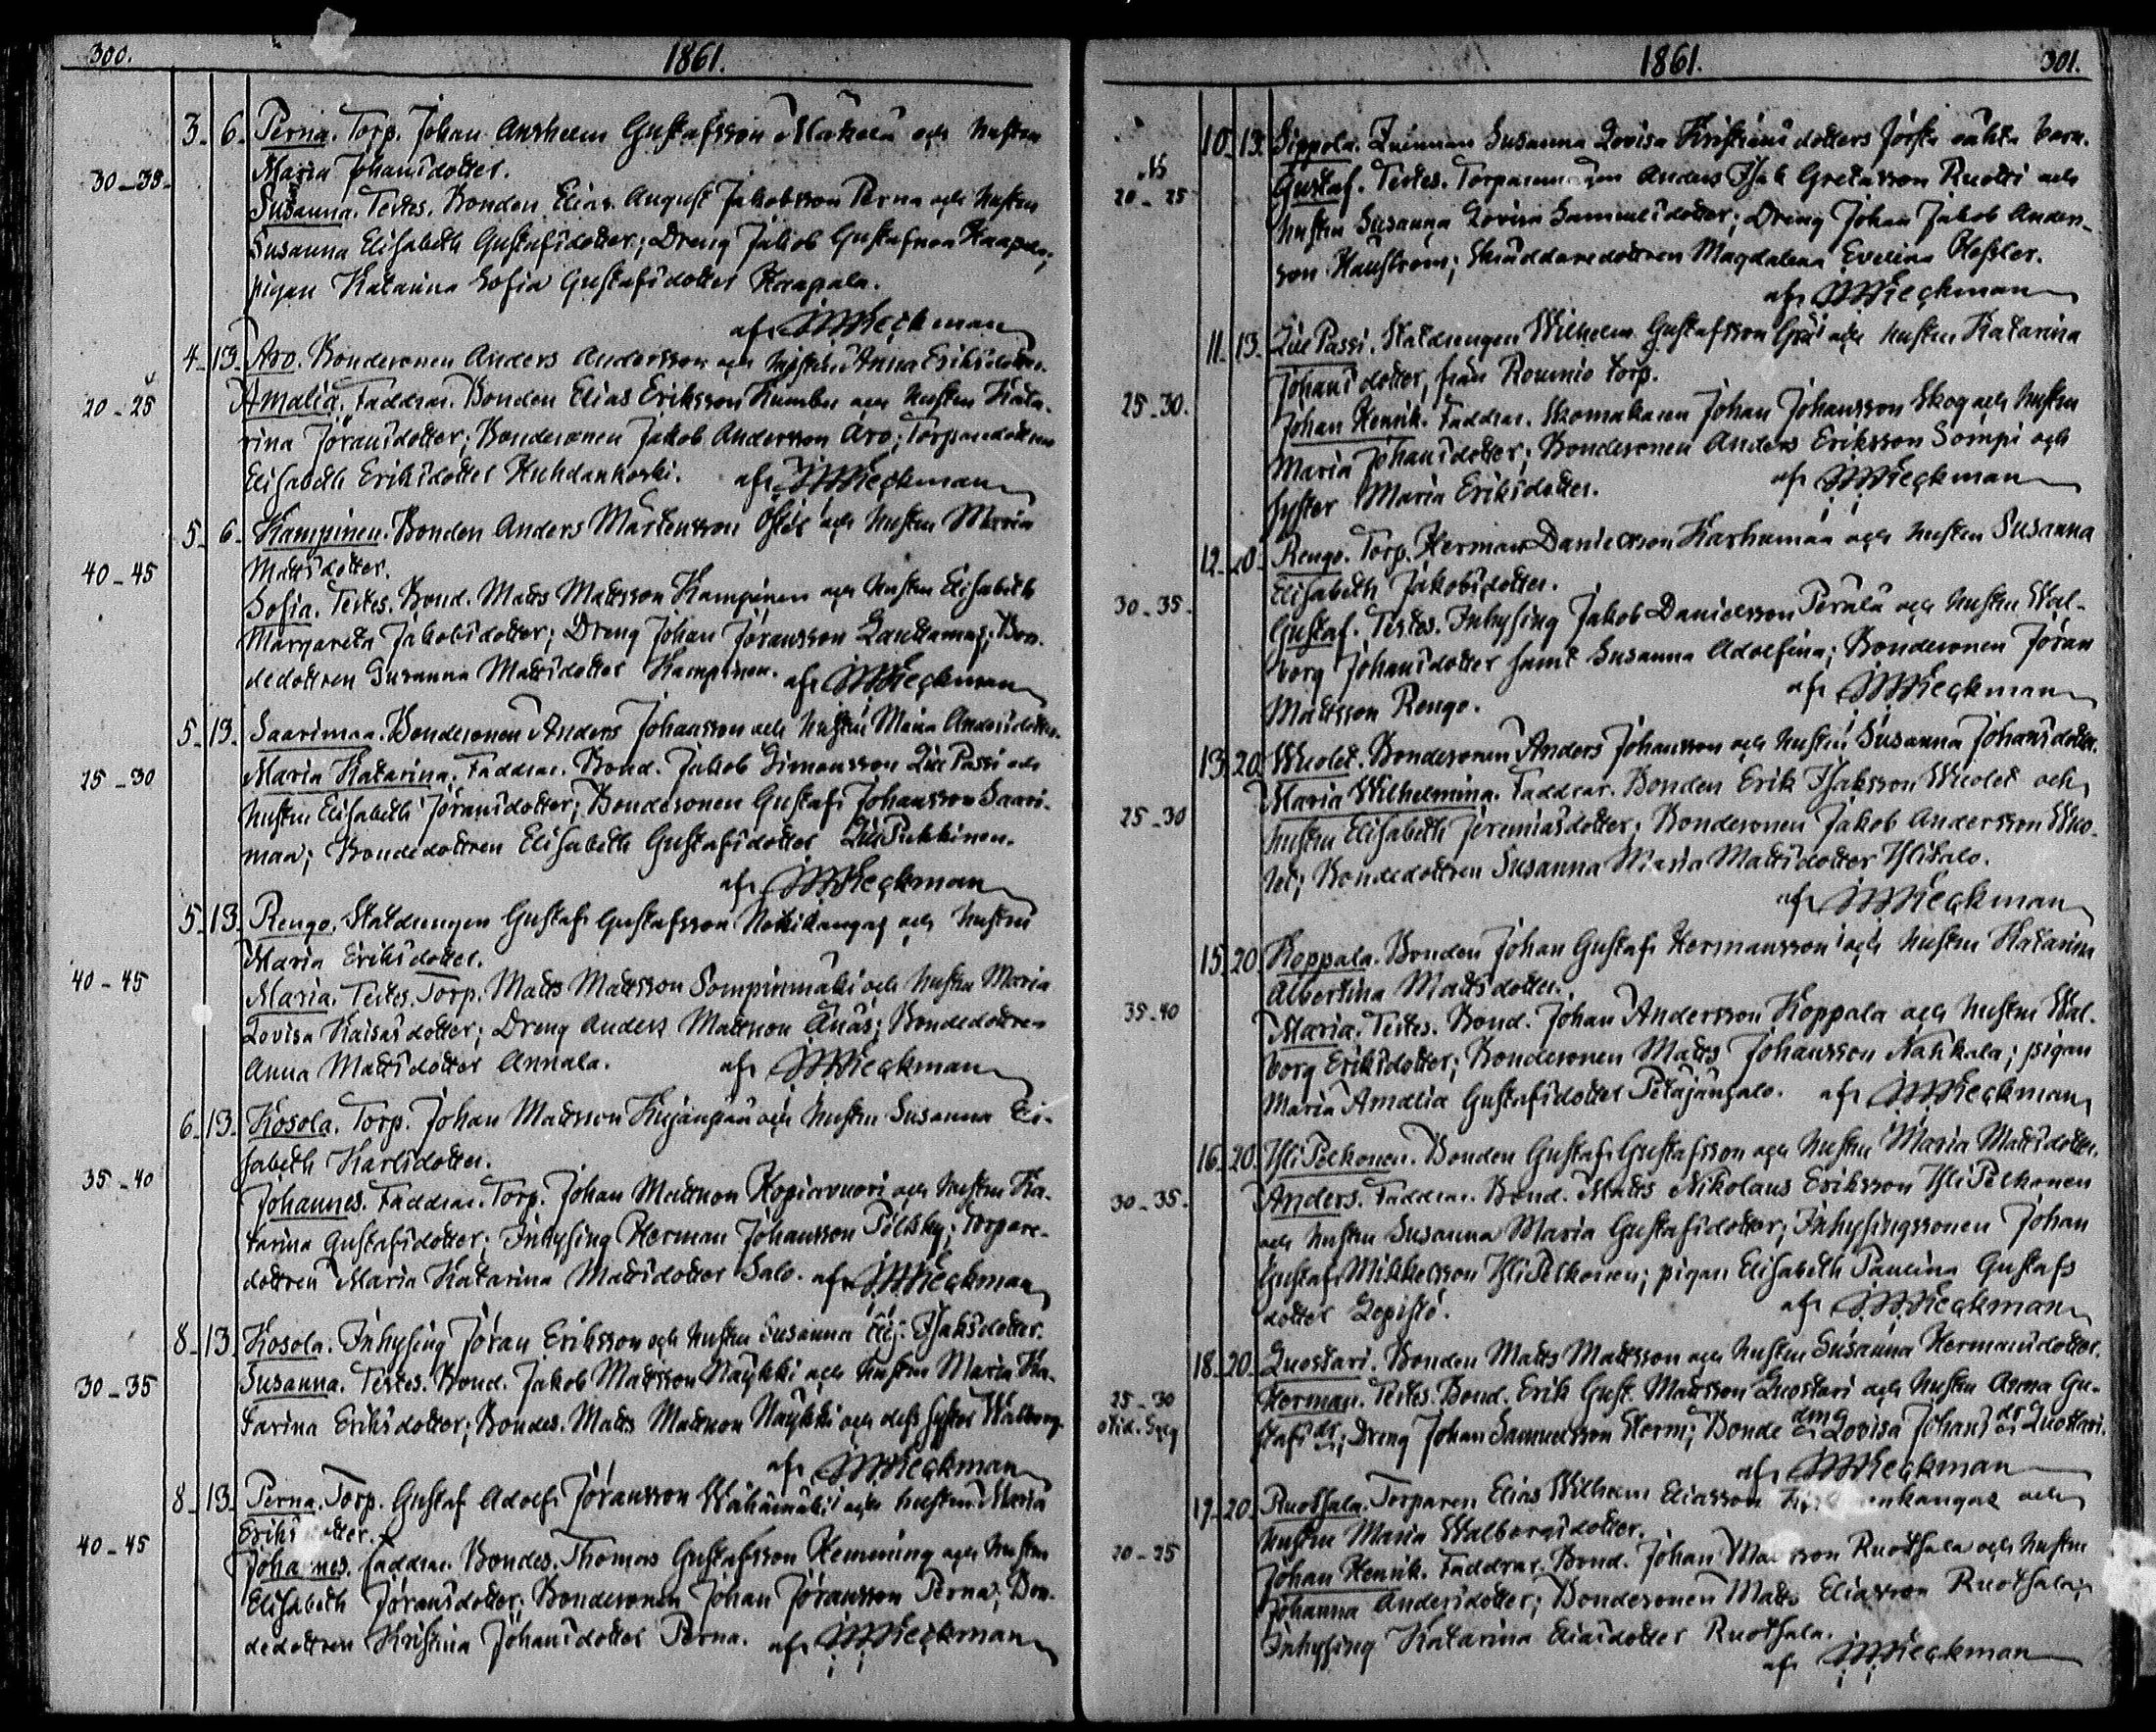 300. 1861.
3. 6. Perna. Torp. Johan Anshelm Gustafsson Mäkelä och hustru
30-35. Maria Johansdotter.
Susanna. Testes. Bonden Elias August Jakobsson Perna och hustru
Susanna Elisabeth Gustafsdotter; Dreng Jakob Gustafsson Haapala;
pigan Katarina Sofia Gustafsdotter Haapala.
af
4. 13. Aro. Bondesonen Anders Andersson och hustru Anna Eriksdotter.
20-25 Amalia. Faddrar. Bonden Elias Eriksson och hustru Kata-
rina Jöransdotter; Bondesonen Jakob Andersson Aro; Torparedottren
Elisabeth Eriksdotter Huhdankoski. af
5. 6. Kampinen. Bonden Anders Mårtensson och hustru Maria
40-45 Mattsdotter.
Sofia. Testes. Bond. Matts Mattsson Kampinen och hustru Elisabeth
Margareta Jakobsdotter; Dreng Johan Jöransson Lauttamus; Bon-
dedottren Susanna Mattsdotter Kampinen. af
5. 13. Saarimaa. Bondesonen Anders Johansson och hustru Maria Andersdotter.
25-30 Maria Katarina. Faddrar. Bond. Jakob Simonsson Lill Passi och
hustru Elisabeth Jöransdotter; Bondesonen Gustaf Johansson Saari-
maa; Bondedottren Elisabeth Gustafsdotter Lill Pukkinen.
af
5. 13. Rengo. Statdrengen Gustaf Gustafsson och hustru
Maria Eriksdotter.
40-45 Maria. Testes. Torp. Matts Mattsson Sompinmäki och hustru Maria
Lovisa Kaisasdotter; Dreng Anders Mattsson Änäs; Bondedottren
Anna Mattsdotter Annala. af
6. 13. Kosola. Torp. Johan Mattsson Kujanpää och hustru Susanna Eli-
sabeth Karlsdotter.
35-40 Johannes. Faddrar. Torp. Johan Mattsson och hustru Ka-
tarina Gustafsdotter; Inhysing Herman Johansson; Torpare-
dottren Maria Katarina Mattsdotter Salo. af
8. 13. Kosola. Inhysing Jöran Eriksson och hustru Susanna Elis. Isaksdotter.
30-35 Susanna. Testes. Bond. Jakob Mattsson Näykki och hustru Maria Ka-
tarina Eriksdotter; Bondes. Matts Mattsson Näykki och dess syster Walborg.
af
8. 13. Perna. Torp. Gustaf Adolf Jöransson Wähämäki och hustru Maria
Eriksdotter.
40-45 Johannes. Faddrar. Bondes. Thomas Gustafsson Hemming och hustru
Elisabeth Jöransdotter; Bondesonen Johan Jöransson Perna; Bon-
dedottren Kristina Johansdotter Perna. af
1861. 301.
10. 13. Sippola. Qvinnan Susanna Lovisa Kristiansdotters första oäkta barn.
20-25 Gustaf. Testes. Torparemågen Anders Isak Gretasson Ruotsi och
hustru Susanna Lovisa Samuelsdotter; Dreng Johan Jakob Anders-
son; Skräddaredottren Magdalena Evelina Hessler.
af
11. 13. Lill Passi. Statdrengen Wilhelm Gustafsson och hustru Katarina
Johansdotter, från Rouvio torp.
25-30. Johan Henrik. Faddrar. Skomakaren Johan Johansson Skog och hustru
Maria Johansdotter; Bondesonen Anders Eriksson Sompi och
syster Maria Eriksdotter. af
12. 20. Rengo. Torp. Herman Danielsson Karhumaa och hustru Susanna
Elisabeth Jakobsdotter.
30-35. Gustaf. Testes. Inhysing Jakob Danielsson Perälä och hustru Wal-
borg Johansdotter samt Susanna Adolfina; Bondesonen Jöran
Mattsson Rengo. af
13. 20. Wuolet. Bondesonen Anders Johansson och hustru Susanna Johansdotter.
Maria Wilhelmina. Faddrar. Bonden Erik Isaksson Wuolet och
25-30 hustru Elisabeth Jeremiasdotter; Bondesonen Jakob Andersson Wuo-
let; Bondedottren Susanna Maria Mattsdotter Ylisalo.
af
15. 20. Koppala. Bonden Johan Gustaf Hermansson och hustru Katarina
Albertina Mattsdotter.
35-40 Maria. Testes. Bond. Johan Andersson Koppala och hustru Wal-
borg Eriksdotter; Bondesonen Matts Johansson Nahkala; pigan
Maria Amalia Gustafsdotter Petäjänsalo. af
16. 20. Yli Pelkonen. Bonden Gustaf Gustafsson och hustru Maria Mattsdotter.
30-35. Anders. Faddrar. Bond. Matts Nikolaus Eriksson Yli Pelkonen
och hustru Susanna Maria Gustafsdotter; Inhysingssonen Johan
Gustaf Mikkelsson Yli Pelkonen; pigan Elisabeth Paulina Gustafs
dotter Lepistö. af
18. 20. Luostari. Bonden Matts Mattsson och hustru Susanna Hermansdotter.
25-30 Herman. Testes. Bond. Erik Gust. Mattsson Luostari och hustru Anna Gu-
stafs dr; Dreng Johan Samuelsson Hermi; Bonde Lovisa Johans dr Luostari.
af
17. 20. Ruotsala. Torparen Elias Wilhelm Eliasson och
hustru Maria Walborgsdotter.
20-25 Johan Henrik. Faddrar. Bond. Johan Mattsson Ruotsala och hustru
Johanna Andersdotter; Bondesonen Matts Eliasson Ruotsala;
Inhysing Katarina Eliasdotter Ruotsala.
af